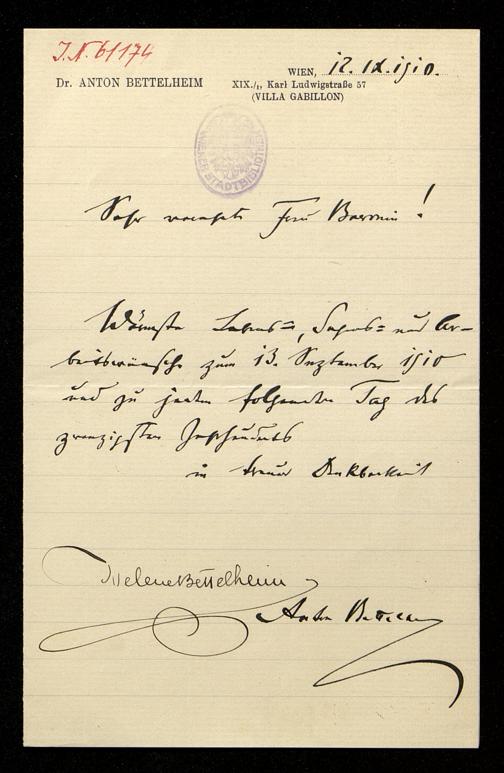 I.N. 61174
WIEN, 12. IX. 1910.
Dr. ANTON BETTELHEIM
XIX./1, Karl Ludwigstraße 57
(VILLA GABILLON)
WIENER STADTBIBLIOTHEK
Sehr verehrte Frau Baronin!
Wärmste Lebens=, Schaffens= und Ar-
beitswünsche zum 13. September 1910
und zu jedem folgenden Tag des
zwanzigsten Jahrhunderts
in treuer Dankbarkeit
Helene Bettelheim
Anton Bettelheim